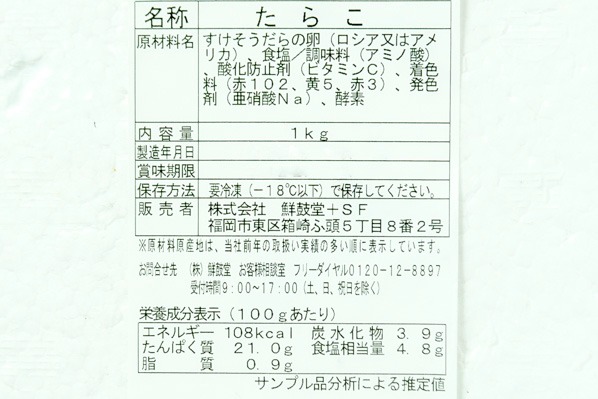 名称 たらこ
原材料名 すけそうだらの卵（ロシア又はアメ
リカ）、食塩／調味料（アミノ酸）
、酸化防止剤（ビタミンC）、着色
料（赤102、黄5、赤3）、発色
剤（亜硝酸Na）、酵素
内容量 1kg
製造年月日
賞味期限
保存方法 要冷凍（－18℃以下）で保存してください。
販売者 株式会社 鮮鼓堂＋SF
福岡市東区箱崎ふ頭5丁目8番2号
※原材料原産地は、当社前年の取扱い実績の多い順に表示しています。
お問合せ先 （株）鮮鼓堂 お客様相談室 フリーダイヤル0120-12-8897
受付時間9：00～17：00（土、日、祝日を除く）
栄養成分表示（100gあたり）
エネルギー 108kcal 炭水化物 3.9g
たんぱく質 21.0g 食塩相当量 4.8g
脂質 0.9g
サンプル品分析による推定値